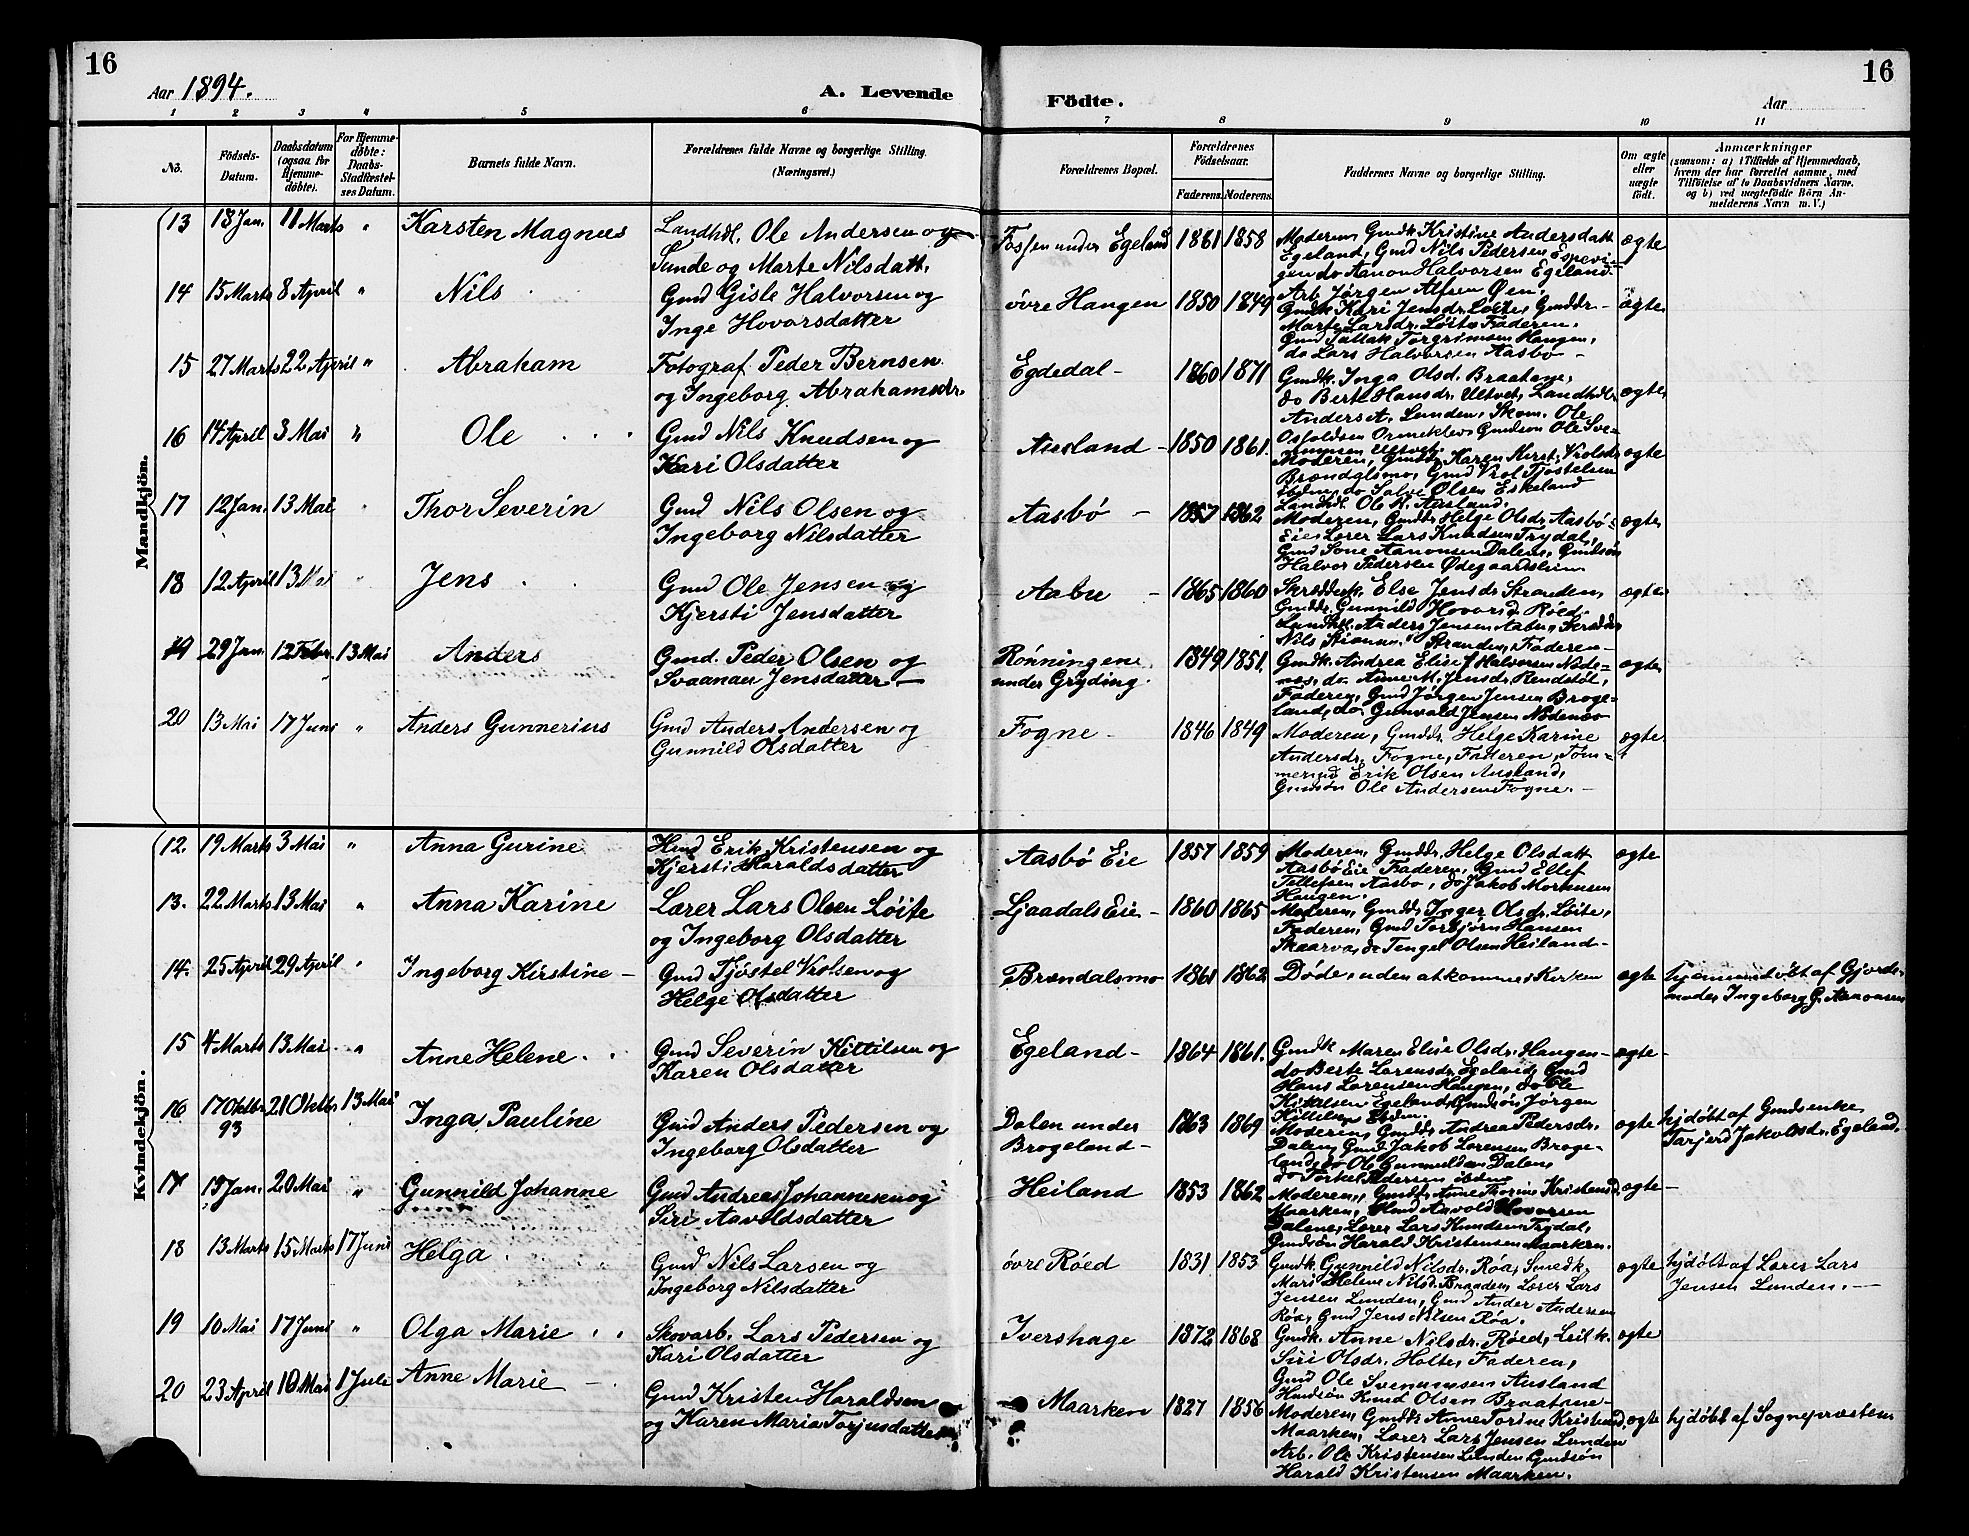 16
Aar 1894.
A. Levende
Födte.
Aar
16
1 2 3 4 5 6 7 8 9 10 11
No.
Födsels-Datum.
Daabsdatum (ogsaa for Hjemme-döbte).
For Hjemme-döbte: Daabs-Stadfæstel-ses Datum.
Barnets fulde Navn.
Forældrenes fulde Navne og borgerlige Stilling. (Næringsvei.)
Forældrenes Bopæl.
Forældrenes Födselsaar.
Faderens. Moderens.
Faddernes Navne og borgerlige Stilling.
Om ægte eller uægte födt.
Anmærkninger
(saasom: a) i Tilfælde af Hjemmedaab, hvem der har forrettet samme, med Tilföielse af to Daabsvidners Navne, og b) ved uægtefödte Börn An-melderens Navn m. V.)
Mandkjön.
13 18 Jan. 11 Marts " Karsten Magnus
Landhdl. Ole Andersen og
Sunde og Marte Nilsdatt.
Fossen under Egeland 1861 1858
Moderen, Gmdk Kristine Andersdatt
Egeland, Gmd Nils Pedersen Espevi-
gen do Aanon Halvorsen Egeland
Arb Jørgen Alfsen Øen.
ægte
14 15 Marts 8 April " Nils
Gmd Gisle Halvorsen og
Inge Hovorsdatter
övre Hangen 1850 1849
Gmdk Kari Jensdr. Löite, Gmddr-
Marte Larsdr. Löite Faderen.
Gmd Tallak Torgrimsen Hangen,
do Lars Halvorsen Aasbö -
ægte
15 27 Marts 22 April " Abraham
Fotograf Peder Bernsen
og Ingeborg Abrahamsdr.
Egdedal - 1860 1871
Gmdk. Inga Olsd. Braatane,
do Berte Hansdr. Ultvet, Landhdl.
Anders A. Lunden, Skom. Ole
Osfoldsen Gmdsøn Ole Sve-
numsen Ultvet.
ægte
16 14 April 3 Mai " Ole
Gmd Nils Knudsen og
Kari Olsdatter
Ausland - 1850 1861.
Moderen, Gmddr. Karen Kirst. Vrolsdr
Brændalsmo, Gmd Vrol Tjøstelsen
ibdm, do Salve Olsen Eskeland
Landhdl Ole N. Ausland.
ægte
17 12 Jan. 13 Mai " Thor Severin
Gmd Nils Olsen og
Ingeborg Nilsdatter
Aasbö - 1857 1862
Moderen, Gmddr Helge Olsdr Aasbö-
Eie, Lærer Lars Knudsen Trydal,
Gmd Sone Aanonsen Dalen, Gmdsön
Halvor Pedersen Ødegaardsleim
ægte
18 12 April 13 Mai " Jens
Gmd Ole Jensen og
Kjersti Jensdatter
Aabu - 1865 1860
Skrædderk. Else Jensdr Stranden,
Gmddr. Gunnild Hovorsd. Röed.
Landhdl. Anders Jensen Aabu, Skrædder
Nils Stranden, Faderen-
ægte
19 29 Jan. 12 Febr. 13 Mai Anders
Gmd. Peder Olsen og
Svaanau Jensdatter -
Rönningene
under Gryding. 1849 1851.
Gmdk Andrea Elise Halvorsen Nede-
næs, do Anne M. Jensdr. Rendstöl,
Faderen, Gmd Jörgen Jensen Broge-
land, do Gunvald Jensen Nedenæs
ægte
20 13 Mai 17 Juni " Anders Gunnerius
Gmd Anders Andersen og
Gunnild Olsdatter
Fogne - 1846 1849
Moderen, Gmddr. Helge Karine
Andersdr. Fogne, Faderen, Töm-
mermd Erik Olsen Ausland,
Gmdsön Ole Andersen Fogne. -
ægte
Kvindekjön.
12. 19 Marts 3 Mai " Anna Gurine
Hmd Erik Kristensen og
Kjersti Haraldsdatter
Aasbö Eie 1857 1859
Moderen, Gmddr. Helge Olsdatt
Aasbö Eie Faderen, Gmd Ellef
Tellefsen Aasbø, do Jakob Mortensen
Hangen.
ægte
13. 22 Marts 13 Mai " Anna Karine
Lærer Lars Olsen Löite
og Ingeborg Olsdatter
Ljaadals Eie - 1860 1865
Moderen, Gmddr. Inger Olsdr. Löite,
Faderen, Gmd Torbjørn Hansen
Skaarva, do Tengel Olsen Heiland -
ægte
14. 25 April 29 April " Ingeborg Kirstine -
Gmd Tjöstel Vrolsen og
Helge Olsdatter
Brændalsmo 1861 1862
Döde, uden at komme i Kirken
ægte
hjemmedöbt af Gjorde-
moder Ingeborg G. Aanonsen
15 4 Marts 13 Mai " Anne Helene
Gmd Severin Kittilsen og
Karen Olsdatter
Egeland - 1864 1861.
Gmdk Maren Elise Olsdr. Hangen -
do Berte Lorensdr. Egeland, Gmd
Hans Lorensen Hangen, do Ole
Kittilsen Egeland, Gmdsön Jörgen
Kittilsen Ibdm.
ægte
16 17 Oktbr 93 21 Oktbr. 13 Mai Inga Pauline
Gmd Anders Pedersen og
Ingeborg Olsdatter
Dalen under
Brogeland - 1863 1869
Moderen, Gmddr. Andrea Pedersdr.
Dalen, Gmd Jakob Lorensen Broge-
land, do Ole Gunnuldsen Dalen,
do Torkel Pedersen ibdm
ægte
hjdøbt af Gmdsenke
Tarjerd Jakobsdr. Egeland.
17 15 Jan. 20 Mai " Gunnild Johanne
Gmd Andreas Johannesen og
Siri Aavoldsdatter
Heiland 1853 1862
Moderen, Gmddr. Anne Thorine Kristensd.
Maarken, Hmd Aavold Hovorsen
Dalene, Lærer Lars Knudsen Trydal,
Gmdsön Harald Kristensen Maarken.
ægte -
18 13 Marts 15 Marts 17 Juni Helga
Gmd Nils Larsen og
Ingeborg Nilsdatter
övre Röed 1831 1853
Gmdk. Gunnild Nilsdr. Röa, Smedk.
Mari Helene Nilsd. Branden, Lærer Lars
Jensen Lunden, Gmd Ander Andersen
Röa, Gmd Jens Nilsen Röa.
ægte
hjdøbt af Lærer Lars
Jensen Lunden. -
19 10 Mai 17 Juni " Olga Marie
Skovarb. Lars Pedersen og
Kari Olsdatter
Ivershage 1872 1868
Gmdk. Anne Nilsdr. Röed, Leilk.
Siri Olsdr. Holte, Faderen,
Gmd Ole Svenumsen Ausland
Hmdsön Knud Olsen Braatane -
ægte
20 23 April 10 Mai 1 Juli Anne Marie -
Gmd Kristen Haraldsen
og Karen Maria Torjusdatter
Maarken 1827 1856
Moderen, Gmddr. Anne Torine Kristensd.
Maarken, Lærer Lars Jensen Lunden
Arb. Ole Kristensen Lunden Gmdsön
Harald Kristensen Maarken.
ægte
hjdøbt af Sognepræsten